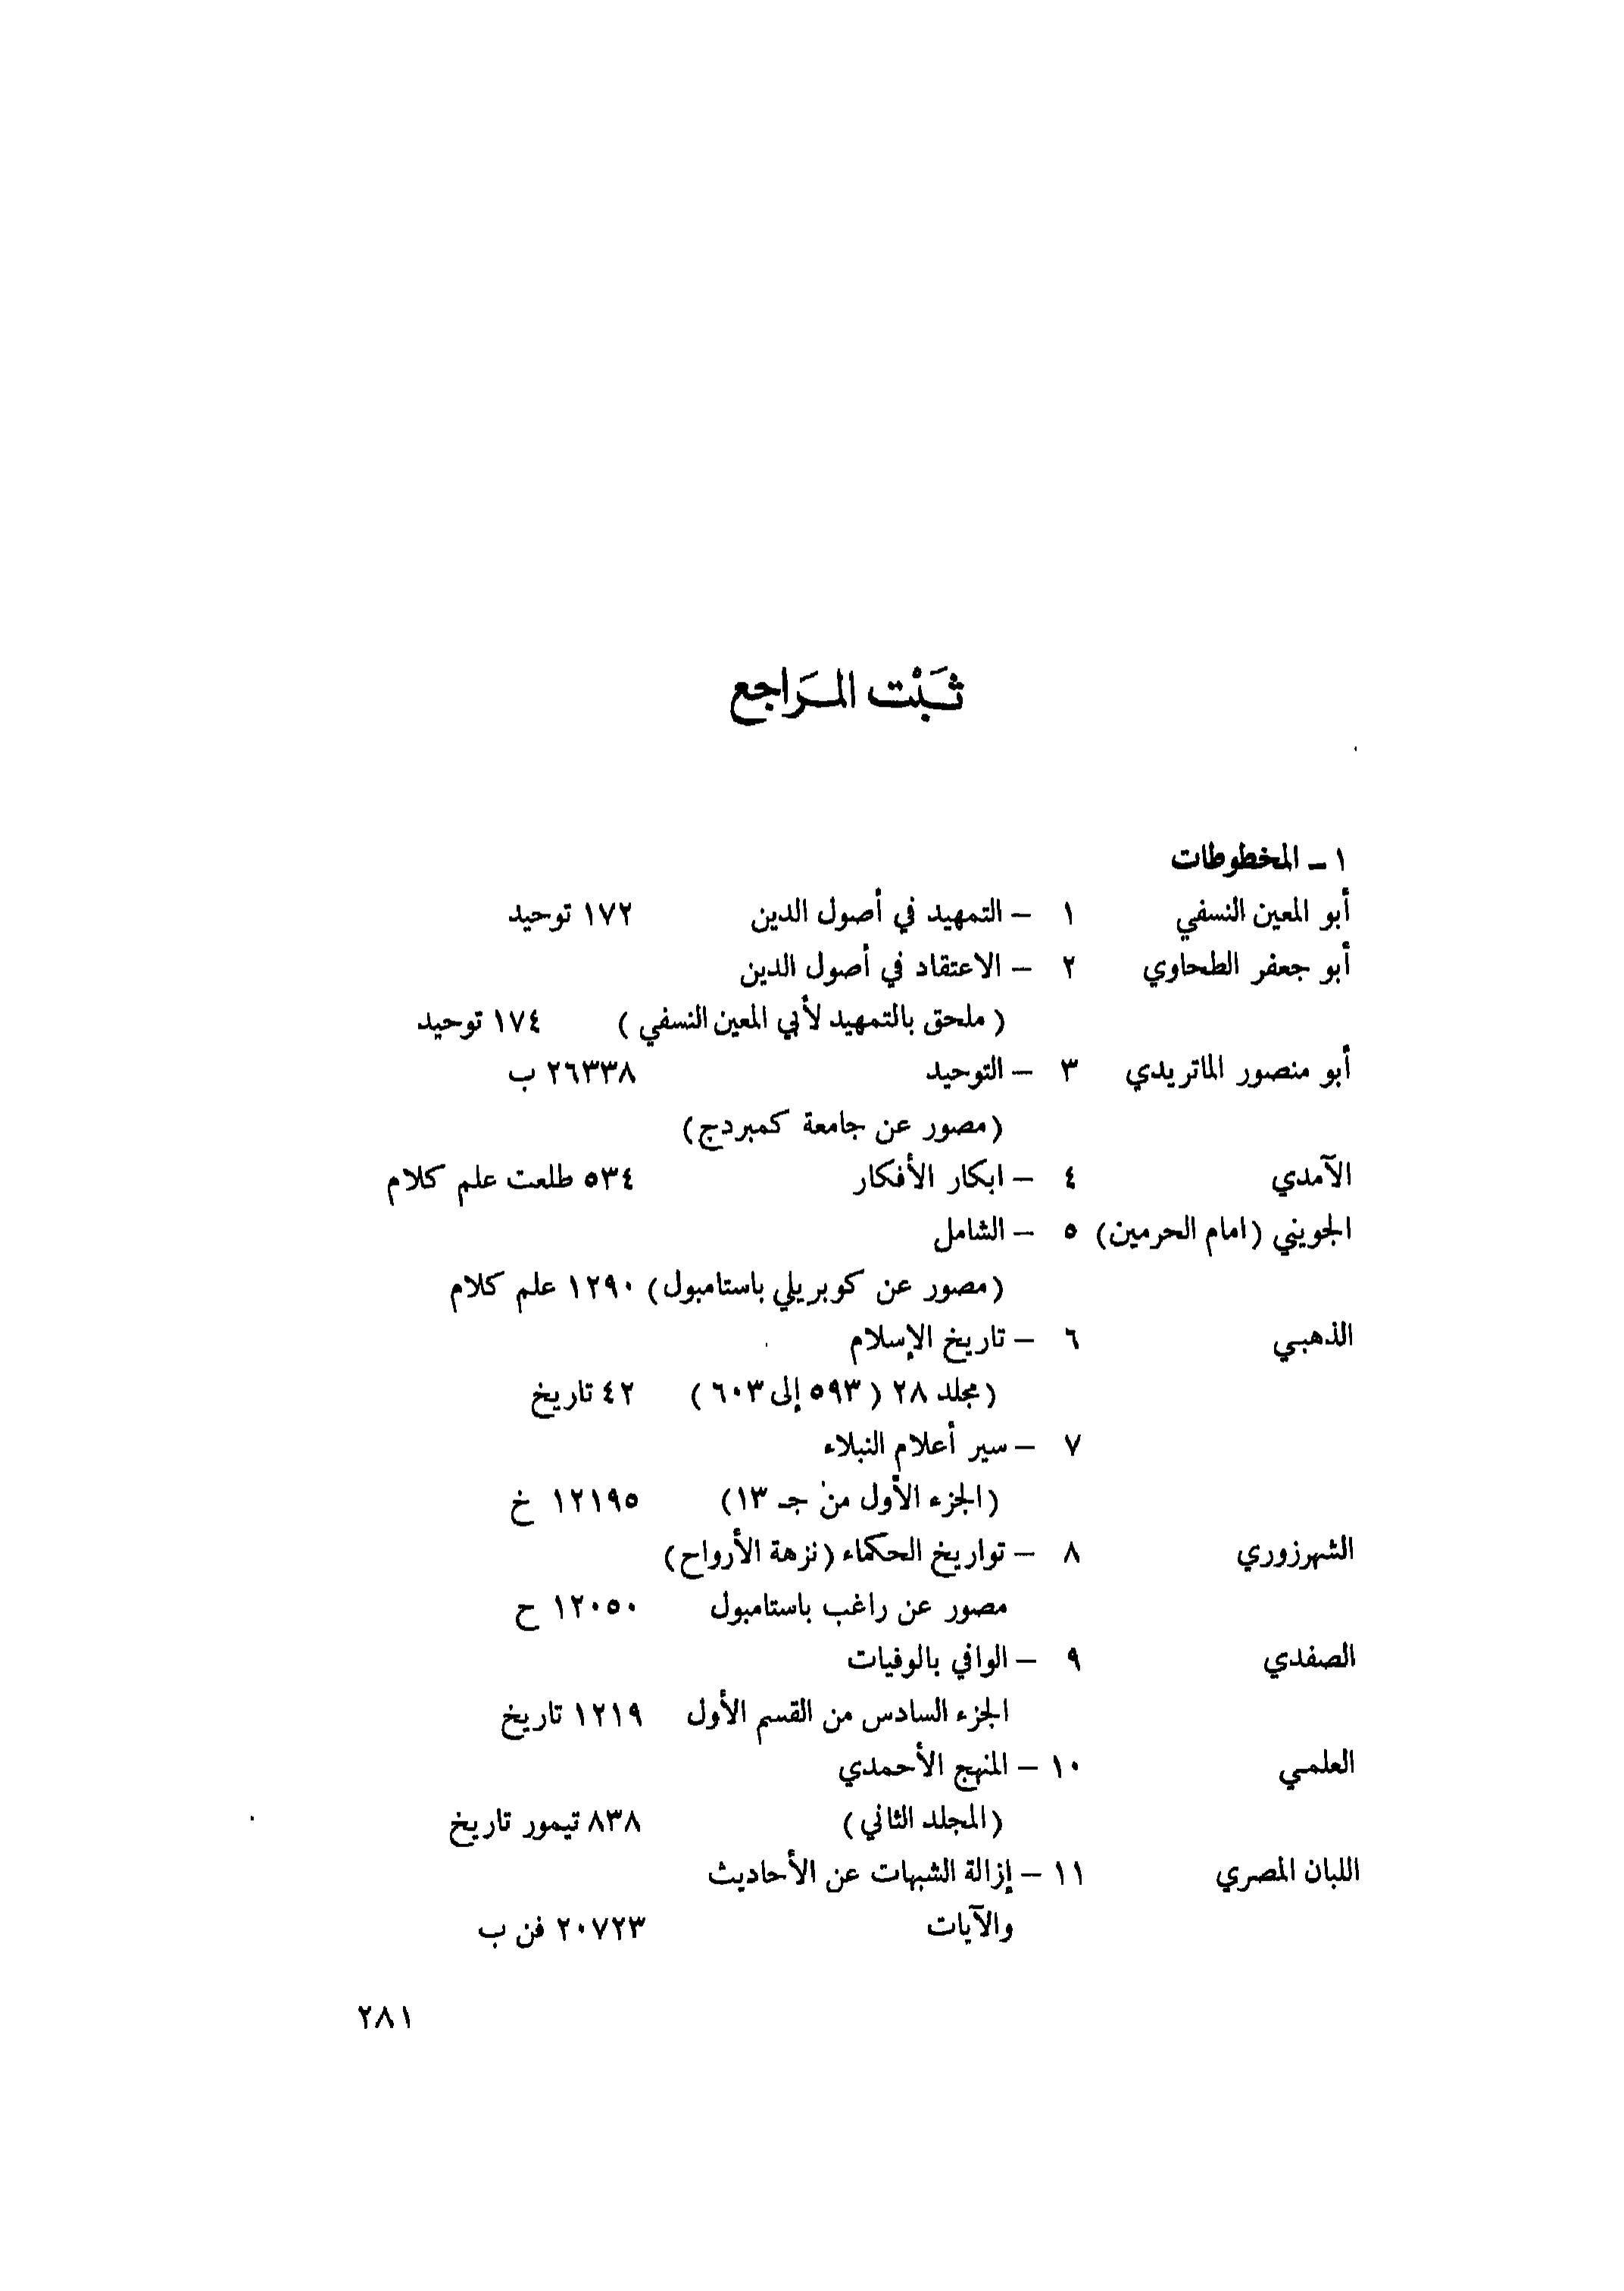 ثَبْت المَراجع
١ - المخطوطات
أبو المعين النسفي ١ - التمهيد في أصول الدين ١٧٢ توحيد
أبو جعفر الطحاوي ٢ - الاعتقاد في أصول الدين
( ملحق بالتمهيد لأبي المعين النسفي ) ١٧٤ توحيد
أبو منصور الماتريدي ٣ - التوحيد ٢٦٣٣٨ ب
(مصور عن جامعة كمبردج)
الآمدي ٤ - ابكار الأفكار ٥٣٤ طلعت علم كلام
الجويني (امام الحرمين) ٥ - الشامل
(مصور عن كوبريلي باستامبول) ١٢٩٠ علم كلام
الذهبي ٦ - تاريخ الإسلام
(مجلد ٢٨ ( ٥٩٣ إلى ٦٠٣ ) ٤٢ تاريخ
٧ - سير أعلام النبلاء
(الجزء الأول من جـ ١٣) ١٢١٩٥ خ
الشهرزوري ٨ - تواريخ الحكماء (نزهة الأرواح)
مصور عن راغب باستامبول ١٢٠٥٠ ح
الصفدي ٩ - الوافي بالوفيات
الجزء السادس من القسم الأول ١٢١٩ تاريخ
العلمي ١٠ - المنهج الأحمدي
(المجلد الثاني) ٨٣٨ تيمور تاريخ
اللبان المصري ١١ - إزالة الشبهات عن الأحاديث
والآيات ٢٠٧٢٣ فن ب
٢٨١